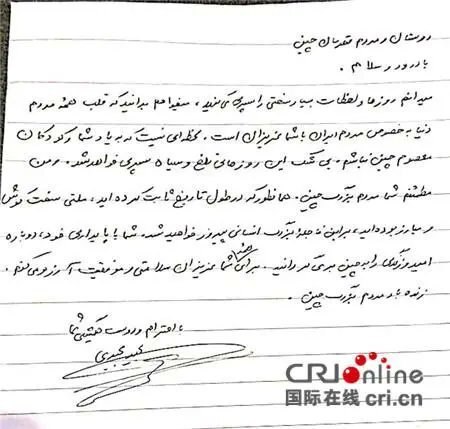 دوستان و مردم قهرمان چین
با درود و سلام .
میدانم روزها و لحظات بسیار سختی را سپری می‌کنید ، میخواهم بدانید که قلب همه مردم
دنیا به خصوص مردم ایران با شما عزیزان است . لحظه‌ای نیست که به یاد شما و کودکان
معصوم چین نباشم . بی شک این روزهای تلخ و سیاه سپری خواهد شد . و من
مطمئنم شما مردم بزرگ چین . همانطور که در طول تاریخ ثابت کرده اید ، ملتی سخت کوش
و مبارز بوده‌اید ، بر این فاجعه بزرگ انسانی پیروز خواهید شد . شما با پایداری خود ، دوباره
امید و زندگی را به چین برمی گردانید . برای همه شما عزیزان سلامتی و موفقیت آرزو می‌کنم .
زنده باد مردم بزرگ چین .
با احترام و دوست همیشگی شما
مجید مجیدی
CRIonline
国际在线 cri.cn